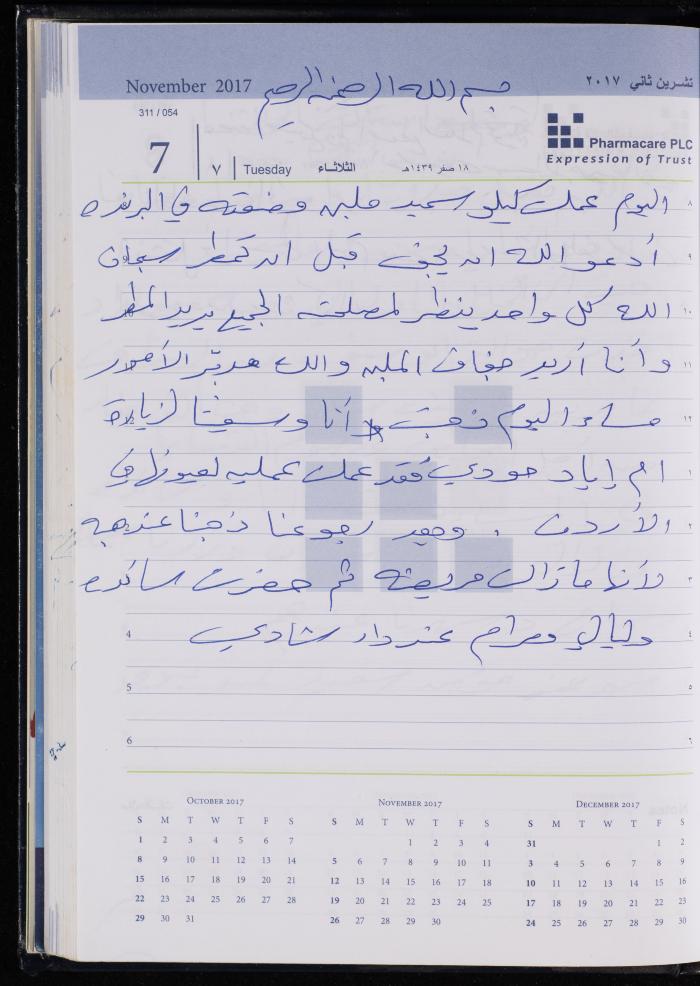 November 2017 بسم الله الرحمن الرحيم تشرين ثاني ٢٠١٧
311 / 054
Pharmacare PLC
Expression of Trust
7 ٧ Tuesday الثلاثاء ١٨ صفر ١٤٣٩هـ
٨ اليوم عملت كيلو سميد ملبن وضعته في البرنده
٩ أدعو الله ان يجف قبل ان تمطر سبحان
١٠ الله كل واحد ينظر لمصلحته الجميع يريد المطر
١١ وأنا أريد جفاف الملبن والله مدبّر الأمور
١٢ مساء اليوم ذهبت أنا و لزيارة
١ ام إياد جودي فقد عملت عمليه لعيونها في
٢ الأردن . وبعد رجوعنا عند هبه
٣ لأنها مازالت مريضة ثم حضرت سائده
4 وليالي ومرام عند دار شادي ٤
5 ٥
6 ٦
October 2017 November 2017 December 2017
S M T W T F S S M T W T F S S M T W T F S
1 2 3 4 5 6 7 1 2 3 4 31 1 2
8 9 10 11 12 13 14 5 6 7 8 9 10 11 3 4 5 6 7 8 9
15 16 17 18 19 20 21 12 13 14 15 16 17 18 10 11 12 13 14 15 16
22 23 24 25 26 27 28 19 20 21 22 23 24 25 17 18 19 20 21 22 23
29 30 31 26 27 28 29 30 24 25 26 27 28 29 30